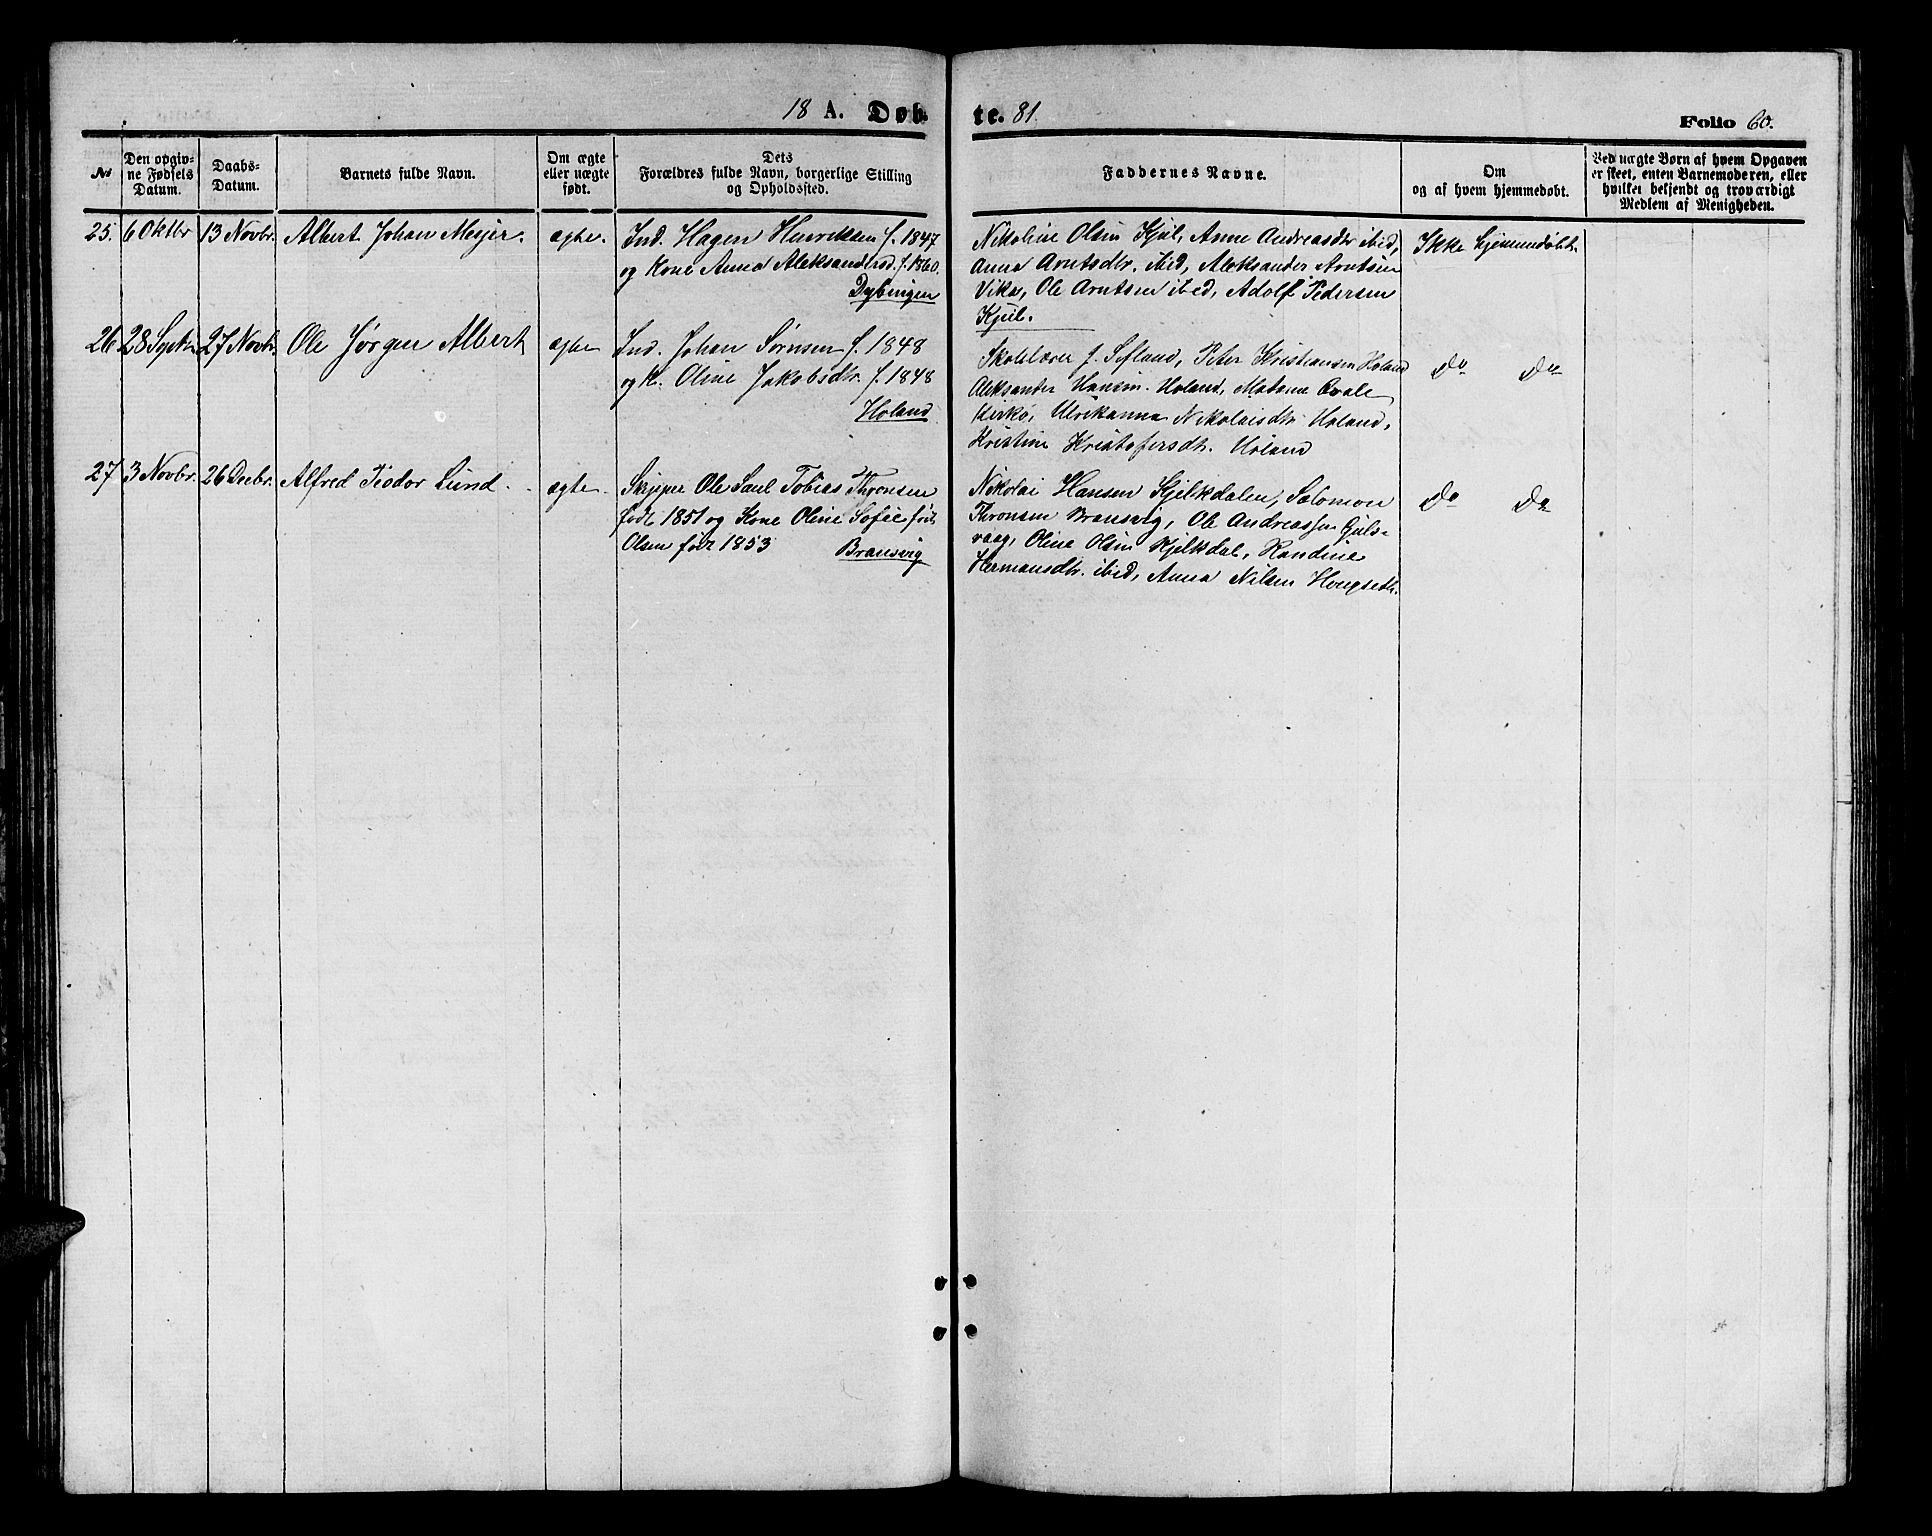 18 A. Døb- te. 81.
Folio 60.
№
Den opgiv-
ne Fødsels
Datum.
Daabs-
Datum.
Barnets fulde Navn.
Om ægte
eller uægte
født.
Dets
Forældres fulde Navn, borgerlige Stilling
og Opholdssted.
Faddernes Navne.
Om
og af hvem hjemmedøbt.
Ved uægte Børn af hvem Opgaven
er skeet, enten Barnemoderen, eller
hvilket bekjendt og troværdigt
Medlem af Menigheden.
25. 6 Oktbr 13 Novbr. Albert Johan Mejer. ægte.
Ind. Hagen Henriksen f. 1847
og Kone Anna Aleksandersd. f. 1860.
Dybingen
Nikoline Olsen Kjul, Anne Andreasdr ibid,
Anna Arntsdtr. ibid, Aleksander Arntsen
Vika, Ole Arntsen ibed, Adolf Pedersen
Kjul.
Ikke hjemmedøbt.
26 28 Septr 27 Novbr. Ole Jørgen Albert ægte
Ind. Johan Sørnsen f. 1848
og K. Oline Jakobsdtr. f. 1848
Holand
Skolelærer J. Sefland, Peter Kristiansen Holand
Aleksander Hansen Holand, Matena
Ulrikanna Nikolaisdtr Holand,
Kristine Kristofersdtr. Holand
Do Do
27 3 Novbr. 26 Decbr. Alfred Teodor Lund. ægte.
Skjiper Ole Paul Tobias Thronsen
født 1851 og Kone Oline Sofie født
Olsen født 1853 Bransvig
Nikolai Hansen Kjelkdalen, Salomon
Thronsen Bransvig, Ole Andreassen Guls-
vaag, Oline Olsen Kjelkdal, Randine
Hermansdtr. ibid, Anna Nilsen
Do Do